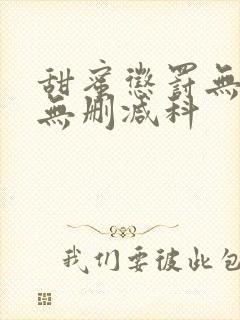 甜蜜懲罰無
無刪減料
我们要彼此包